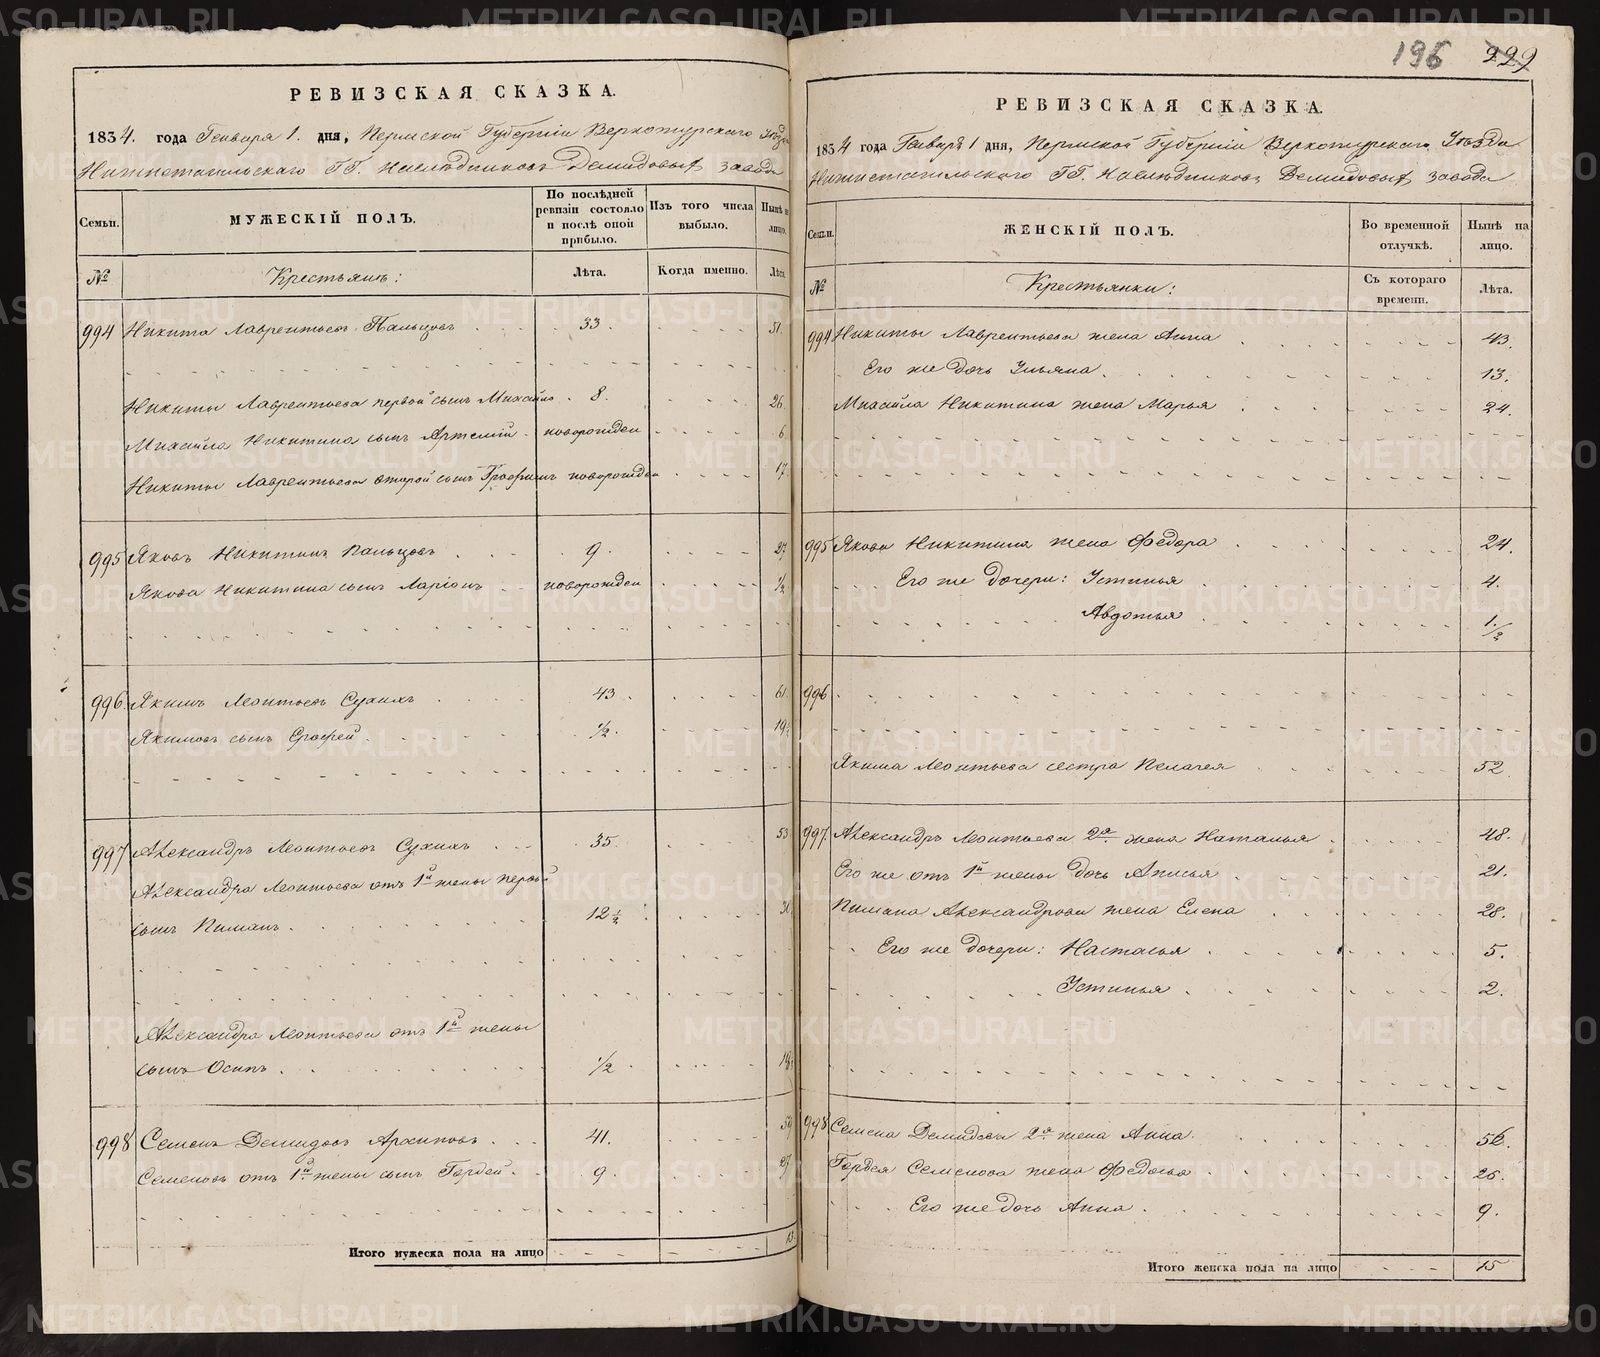 196 229
РЕВИЗСКАЯ СКАЗКА.
1834. года Генваря 1. дня, Пермской Губерніи Верхотурскаго Уѣзда
Нижнетагильскаго ГГ. Наслѣдниковъ Демидовыхъ завода
Семьи.
МУЖЕСКІЙ ПОЛЪ.
По послѣдней ревизіи состояло и послѣ оной прибыло.
Изъ того числа выбыло.
Нынѣ на лицо.
№
Крестьянъ:
Лѣта.
Когда именно.
Лѣта
994 Никита Лаврентьевъ Пальцовъ 33. 51.
Никиты Лаврентьева первой сынъ Михайло 8. 26
Михайла Никитина сынъ Артемій новорожден 6
Никиты Лаврентьева второй сынъ Трофимъ новорожден 17.
995 Яковъ Никитинъ Пальцовъ 9. 27
Якова Никитина сынъ Ларіонъ новорожден 1/2
996. Якимъ Леонтьевъ Сухихъ 43. 61.
Якимовъ сынъ Ерофей 1/2. 19
997 Александръ Леонтьевъ Сухихъ 35. 53
Александра Леонтьева отъ 1й жены первой
сынъ Пиманъ 12 1/2
Александра Леонтьева отъ 1й жены
сынъ Осипъ 1/2
998 Семенъ Демидовъ Архиповъ 41. 59
Семеновъ отъ 1й жены сынъ Гордей 9. 27
Итого мужеска пола на лицо 13
РЕВИЗСКАЯ СКАЗКА.
1834 года Генваря 1 дня, Пермской Губерніи Верхотурскаго Уѣзда
Нижнетагильскаго ГГ. Наслѣдниковъ Демидовыхъ завода
Семьи.
ЖЕНСКІЙ ПОЛЪ.
Во временной отлучкѣ.
Нынѣ на лицо.
№
Крестьянки:
Съ котораго времени.
Лѣта.
994 Никиты Лаврентьева жена Анна 43.
Его же дочь Ульяна 13.
Михайла Никитина жена Марья 24.
995 Якова Никитина жена Федора 24.
Его же дочери: Устинья 4.
Авдотья 1/2
996
Якима Леонтьева сестра Пелагея 52.
997 Александръ Леонтьева 2я жена Наталья 48.
Его же отъ 1й жены дочь Анисья 21.
Пимана Александрова жена Елена 28.
Его же дочери: Настасья 5.
Устинья 2.
998 Семена Демидова 2я жена Анна 56.
Гордея Семенова жена Федосья 26.
Его же дочь Анна 9.
Итого женска пола на лицо 15
METRIKI.GASO-URAL.RU